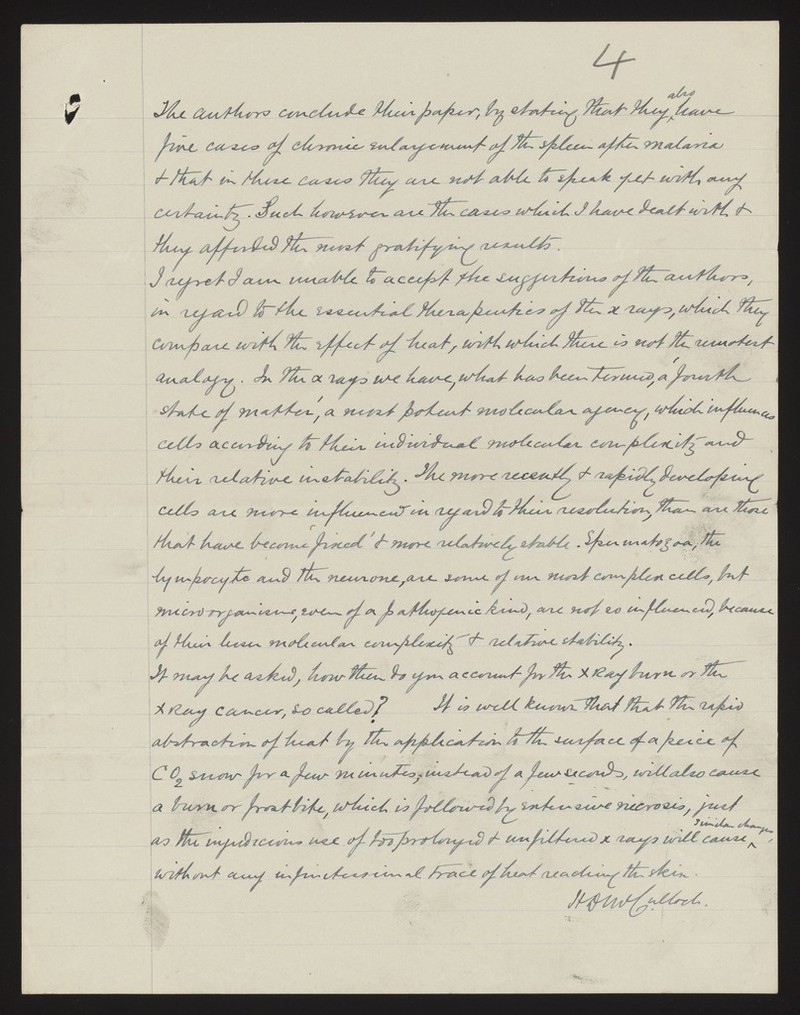 4
The authors conclude their paper, by stating that they also have
five cases of chronic enlargement of the spleen after malaria
& that in these cases they are not able to speak yet with any
certainty. Such however are the cases which I have dealt with &
they afforded the most gratifying results.
I regret I am unable to accept the suggestions of the authors,
in regard to the essential therapeutics of the x rays, which they
compare with the effect of heat, with which there is not the remotest
analogy. In the x rays we have, what has been termed, a 'fourth
state of matter', a most potent molecular agency, which influences
cells according to their individual molecular complexity and
their relative instability. The more recently & rapidly developing
cells are more influenced in regard to their resolution, than are those
that have become 'fixed' & more relatively stable. Spermatozoa, the
lympocyte and the neurone, are some of our most complex cells, but
microorganisms, even of a pathogenic kind, are not so influenced, because
of their lesser molecular complexity & relative stability.
It may be asked, how then do you account for the X Ray burn or the
X Ray cancer, so called? It is well known that that the rapid
abstraction of heat by the application to the surface of a peice of
CO2 snow for a few minutes, instead of a few seconds, will also cause
a burn or frost bite, which is followed by extensive necrosis, just
as the injudicious use of too prolonged & unfiltered x rays will cause similar changes,
without any infinitessimal trace of heat reaching the skin.
H D McCulloch.